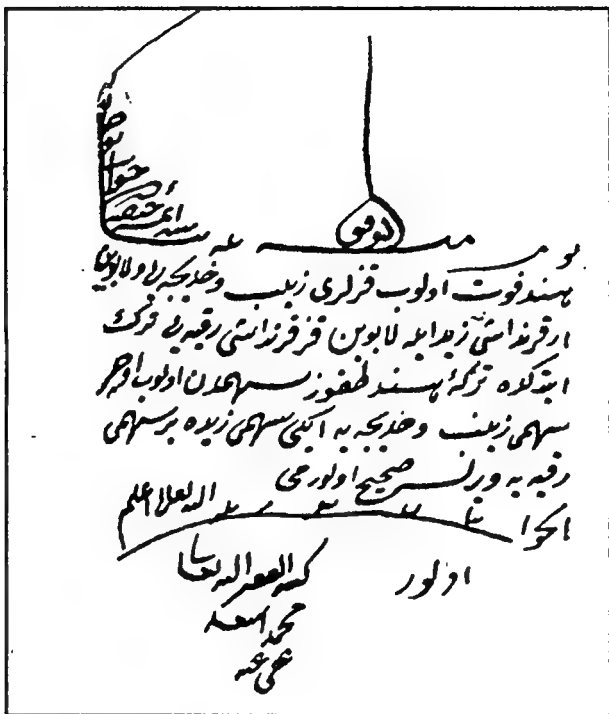 توفيق
بو مسئله
ائمه حنفيه
هند فوت اولوب قزلرى زينب و خديجه يى و لابوين
ار قرنداشى زيد ايله لابوين قز قرنداشى رقيه يى ترك
ايتدكده تركهٔ هند طقوز سهمدن اولوب اوچر
سهمى زينب و خديجه يه ايكى سهمى زيده بر سهمى
رقيه يه ورلسه صحيح اولورمى
الجواب الله تعالى اعلم
اولور
كتبه الفقير اليه تعالى
محمد اسعد
عفى عنه